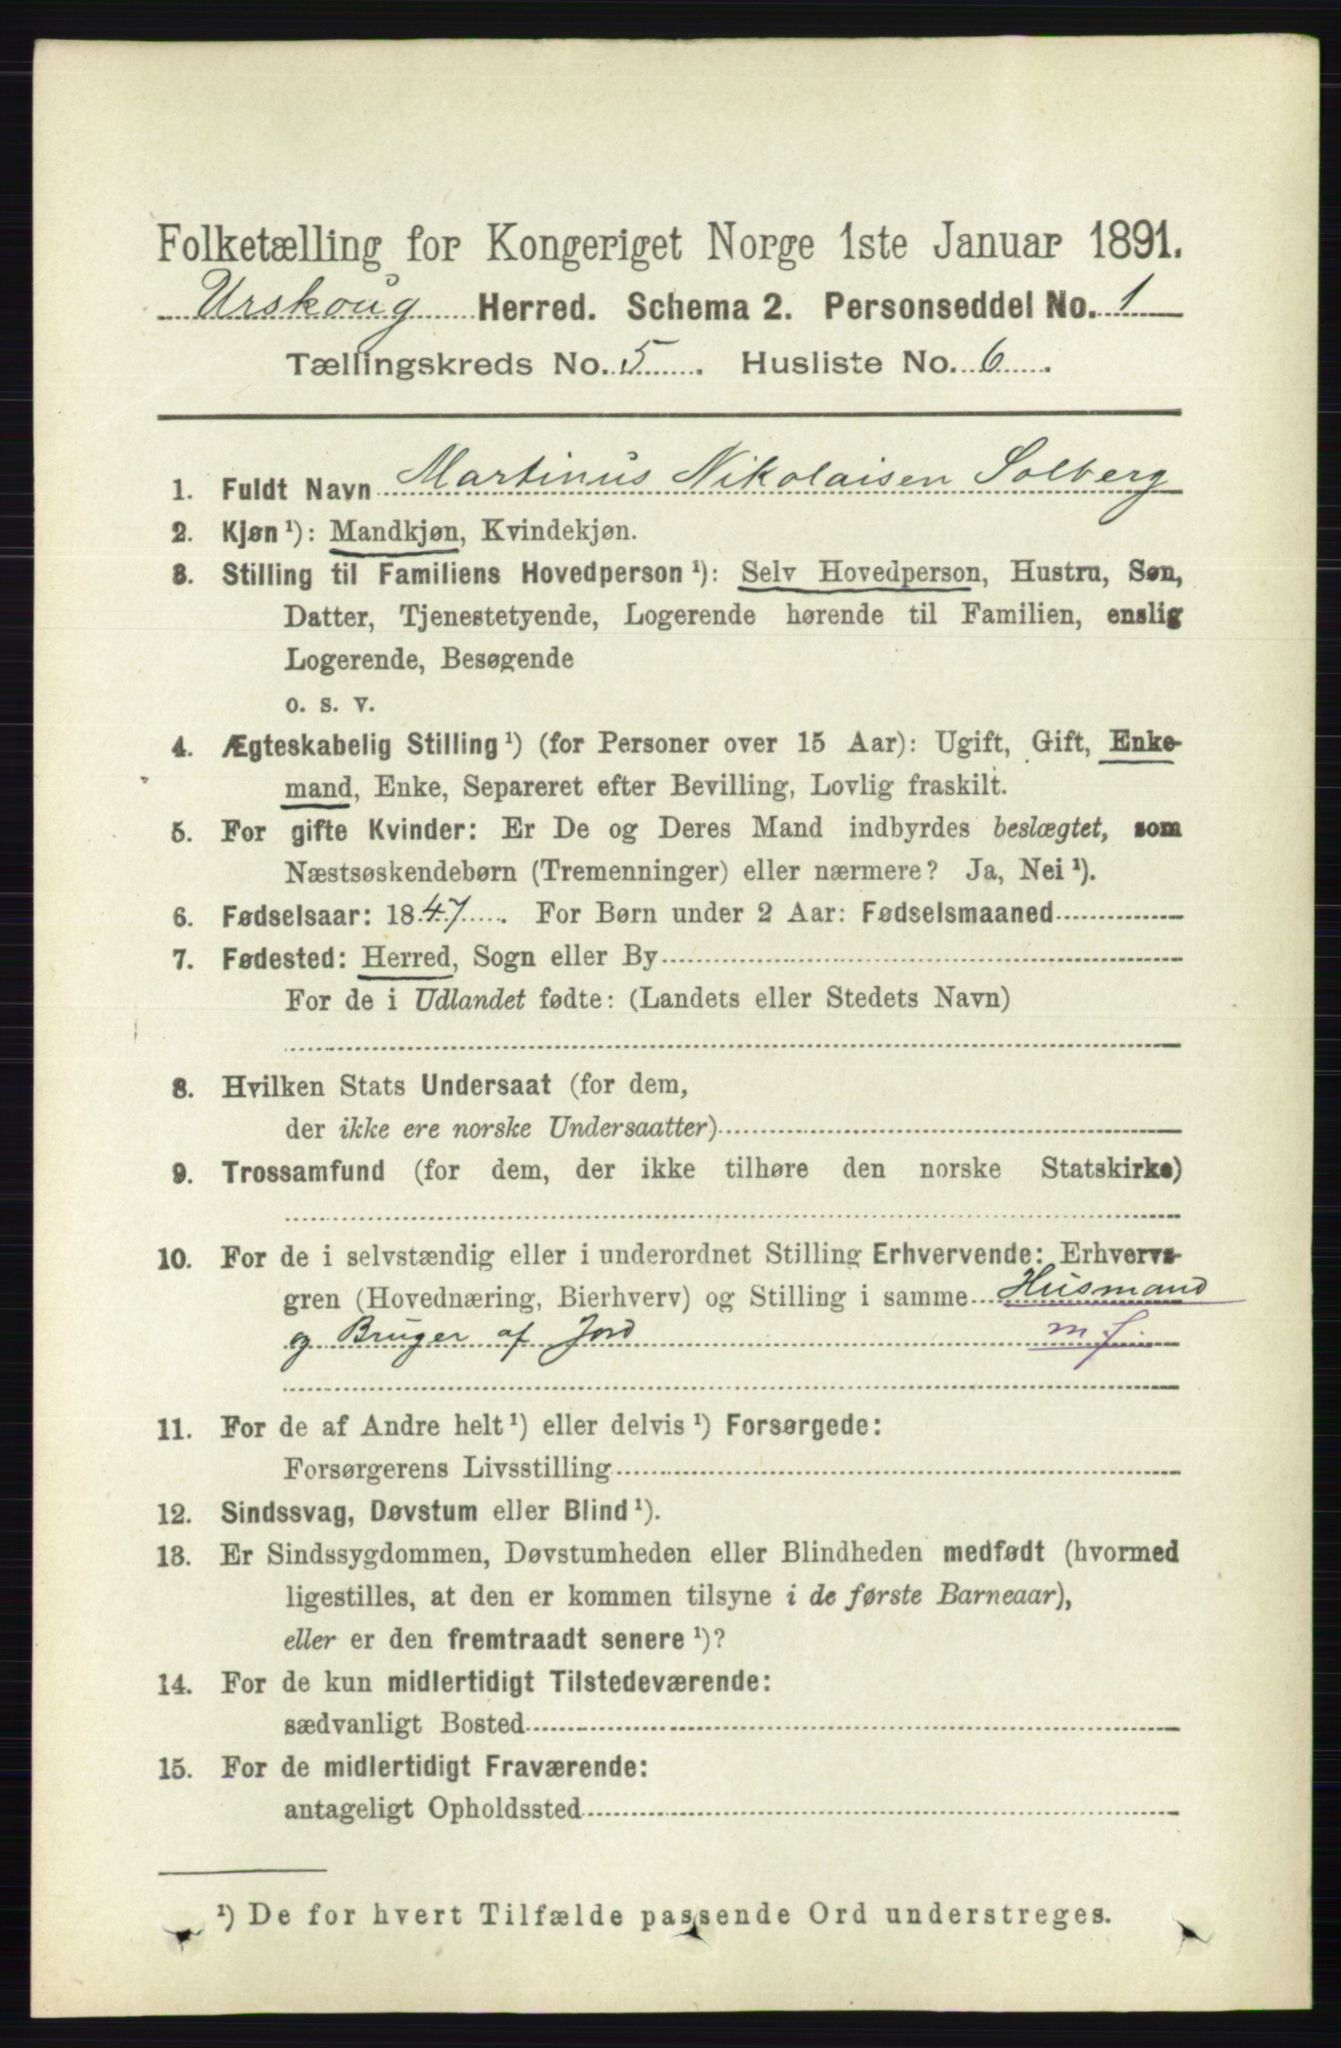 Folketælling for Kongeriget Norge 1ste Januar 1891.
Urskoug Herred. Schema 2. Personseddel No. 1
Tællingskreds No. 5. Husliste No. 6.
1. Fuldt Navn Martinus Nikolaisen Solberg
2. Kjøn¹): Mandkjøn, Kvindekjøn.
3. Stilling til Familiens Hovedperson¹): Selv Hovedperson, Hustru, Søn,
Datter, Tjenestetyende, Logerende hørende til Familien, enslig
Logerende, Besøgende
o. s. v.
4. Ægteskabelig Stilling¹) (for Personer over 15 Aar): Ugift, Gift, Enke-
mand, Enke, Separeret efter Bevilling, Lovlig fraskilt.
5. For gifte Kvinder: Er De og Deres Mand indbyrdes beslægtet, som
Næstsøskendebørn (Tremenninger) eller nærmere? Ja, Nei¹).
6. Fødselsaar: 1847. For Børn under 2 Aar: Fødselsmaaned
7. Fødested: Herred, Sogn eller By
For de i Udlandet fødte: (Landets eller Stedets Navn)
8. Hvilken Stats Undersaat (for dem,
der ikke ere norske Undersaatter)
9. Trossamfund (for dem, der ikke tilhøre den norske Statskirke)
10. For de i selvstændig eller i underordnet Stilling Erhvervende: Erhvervs-
gren (Hovednæring, Bierhverv) og Stilling i samme Husmand
og Bruger af Jord m j.
11. For de af Andre helt¹) eller delvis¹) Forsørgede:
Forsørgerens Livsstilling
12. Sindssvag, Døvstum eller Blind¹).
13. Er Sindssygdommen, Døvstumheden eller Blindheden medfødt (hvormed
ligestilles, at den er kommen tilsyne i de første Barneaar),
eller er den fremtraadt senere¹)?
14. For de kun midlertidigt Tilstedeværende:
sædvanligt Bosted
15. For de midlertidigt Fraværende:
antageligt Opholdssted
¹) De for hvert Tilfælde passende Ord understreges.